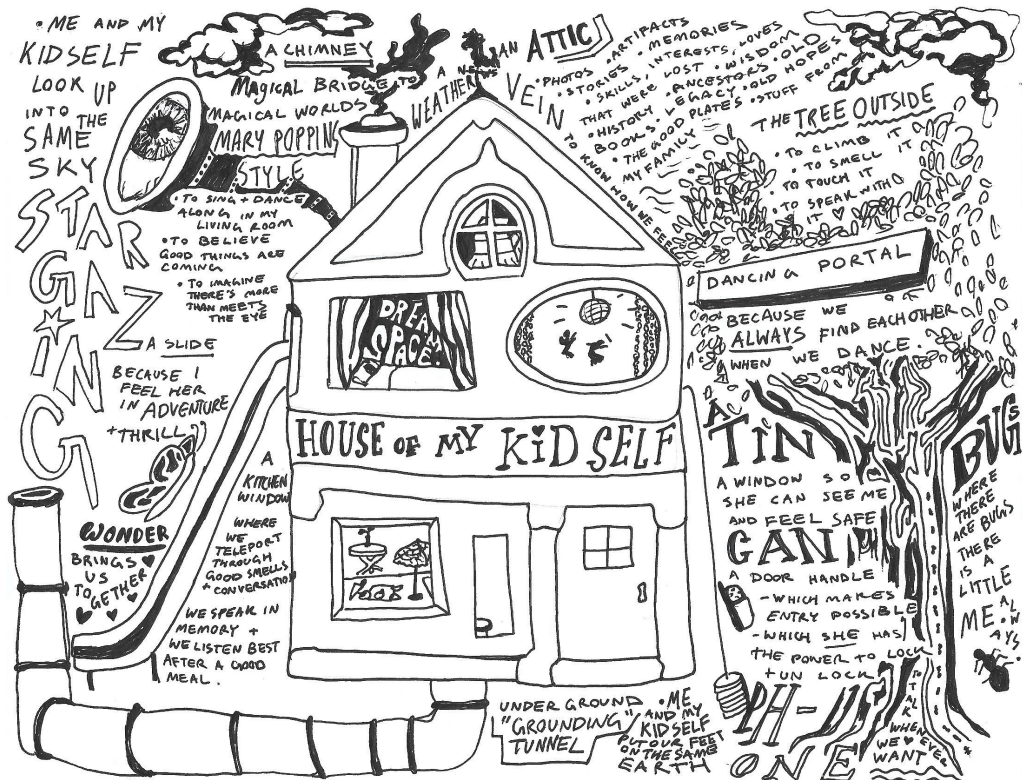 • ME AND MY
KIDSELF
LOOK UP
INTO THE
SAME
SKY
STAR
GAZ
ING
A CHIMNEY
MAGICAL BRIDGE TO
MAGICAL WORLDS
MARY POPPINS
STYLE
• TO SING + DANCE
ALONG IN MY
LIVING ROOM
• TO BELIEVE
GOOD THINGS ARE
COMING
• TO IMAGINE
THERE'S MORE
THAN MEETS
THE EYE
A NEWS
WEATHER VEIN
TO KNOW HOW WE FEEL
AN ATTIC
• PHOTOS • ARTIFACTS
• STORIES • MEMORIES
• SKILLS, INTERESTS, LOVES
THAT WERE LOST • WISDOM
• HISTORY ANCESTORS • OLD
BOOKS • LEGACY • OLD HOPES
• THE GOOD PLATES • STUFF FROM
MY FAMILY
THE TREE OUTSIDE
• TO CLIMB IT
• TO SMELL IT
• TO TOUCH IT
• TO SPEAK WITH
IT
DANCING PORTAL
BECAUSE WE
ALWAYS FIND EACH OTHER
WHEN WE DANCE.
DREAM
SPACE
A SLIDE
BECAUSE I
FEEL HER
IN ADVENTURE
+ THRILL
HOUSE OF MY KID SELF
A
KITCHEN
WINDOW
WHERE
WE
TELEPORT
THROUGH
GOOD SMELLS
+ CONVERSATION
WE SPEAK IN
MEMORY +
WE LISTEN BEST
AFTER A GOOD
MEAL.
WONDER
BRINGS
US
TOGETHER
A
TIN
CAN
PH-
ONE
TO TALK
WHENEVER
WE
WANT
A WINDOW SO
SHE CAN SEE ME
AND FEEL SAFE
A DOOR HANDLE
- WHICH MAKES
ENTRY POSSIBLE
- WHICH SHE HAS
THE POWER TO LOCK
+ UN LOCK
BUGS
WHERE
THERE
ARE BUGS
THERE
IS A
LITTLE
ME
ALWAYS.
UNDER GROUND
"GROUNDING"
TUNNEL
• ME
AND MY
KIDSELF
PUT OUR FEET
ON THE SAME
EARTH